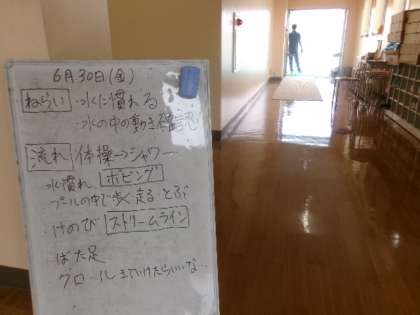 6月30日(金)
ねらい ・水に慣れる
・水の中の動き確認
流れ 体操→シャワー
水慣れ ボビング
プールの中で歩く 走る とぶ
けのび ストリームライン
ばた足
クロールまでいけたらいいな…